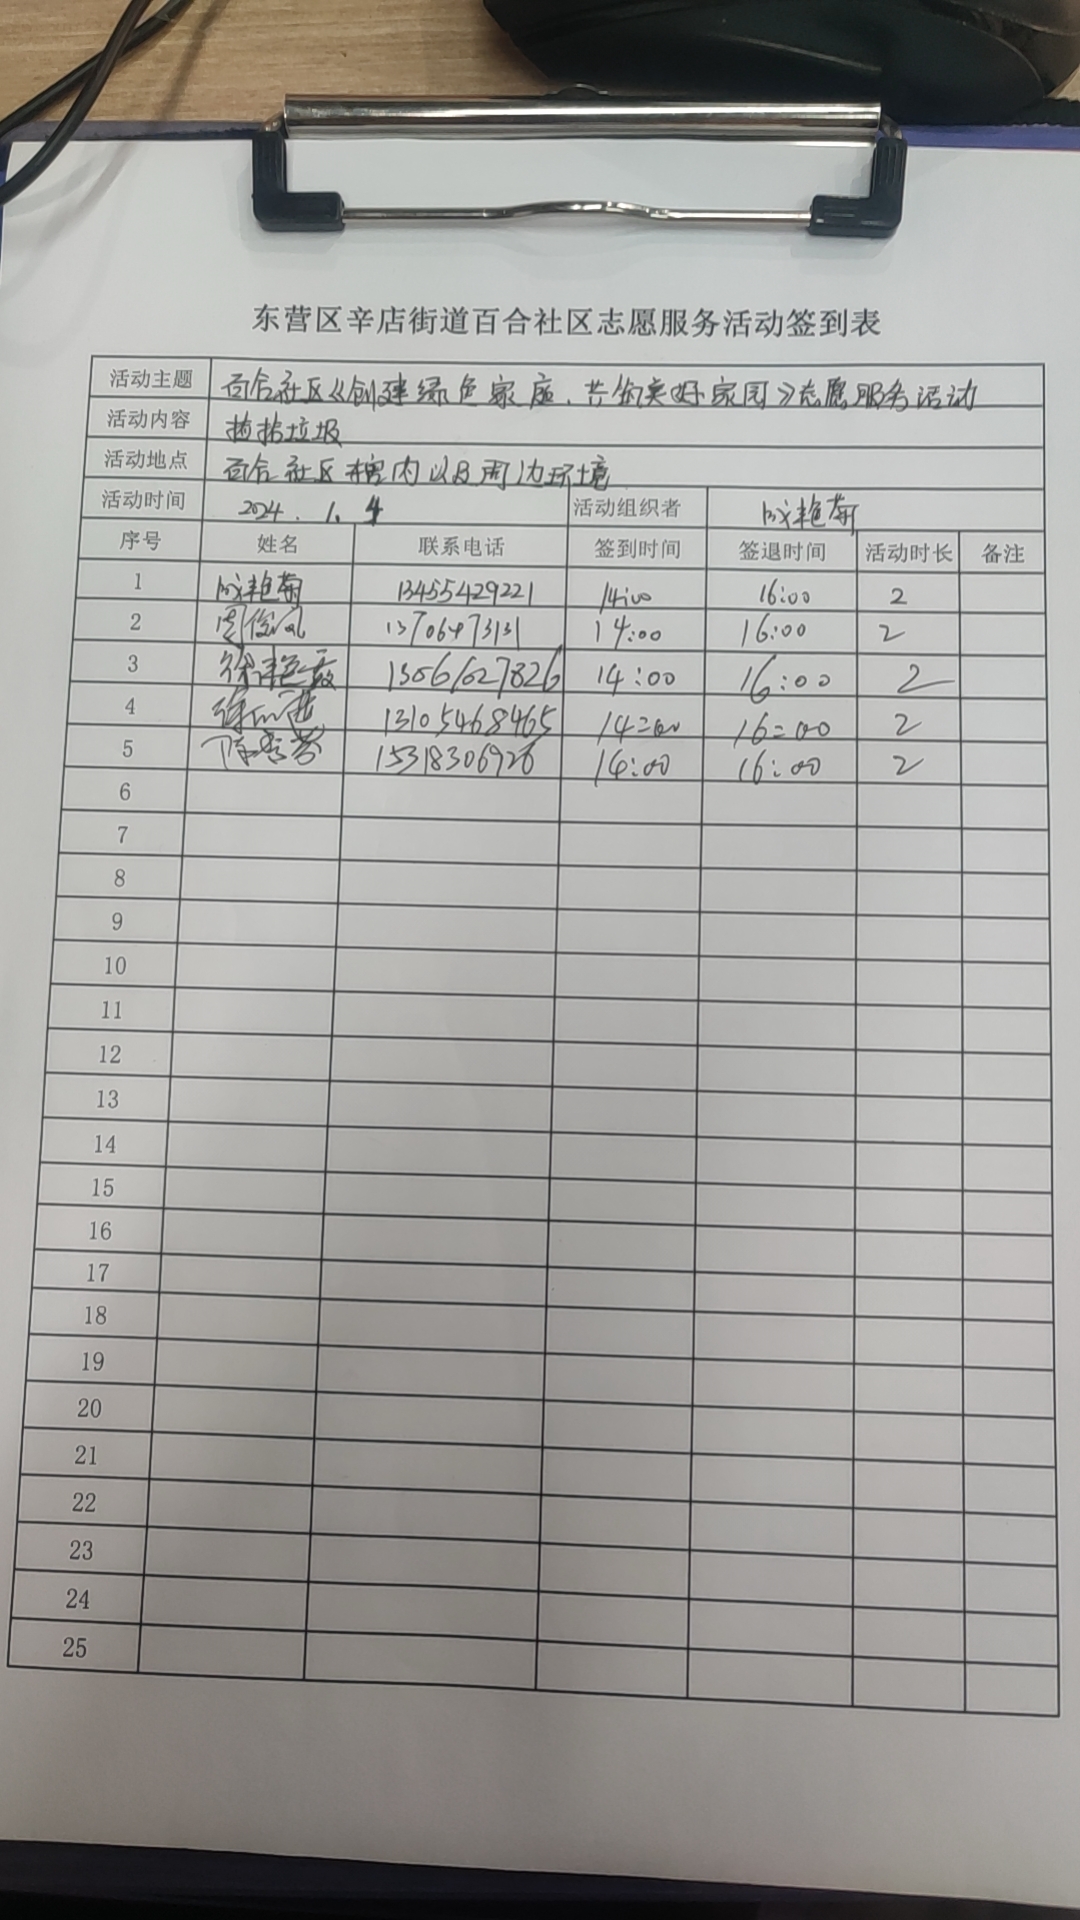 东营区辛店街道百合社区志愿服务活动签到表
活动主题 百合社区《创建绿色家庭、共筑美好家园》志愿服务活动
活动内容 捡拾垃圾
活动地点 百合社区辖内以及周边环境
活动时间 2024.1.4 活动组织者 成艳菊
序号 姓名 联系电话 签到时间 签退时间 活动时长 备注
1 成艳菊 13455429221 14:00 16:00 2
2 周俊凤 13706473131 14:00 16:00 2
3 徐 13561627826 14:00 16:00 2
4 徐 13105468465 14:00 16:00 2
5 陈秀芳 15318306926 14:00 16:00 2
6
7
8
9
10
11
12
13
14
15
16
17
18
19
20
21
22
23
24
25